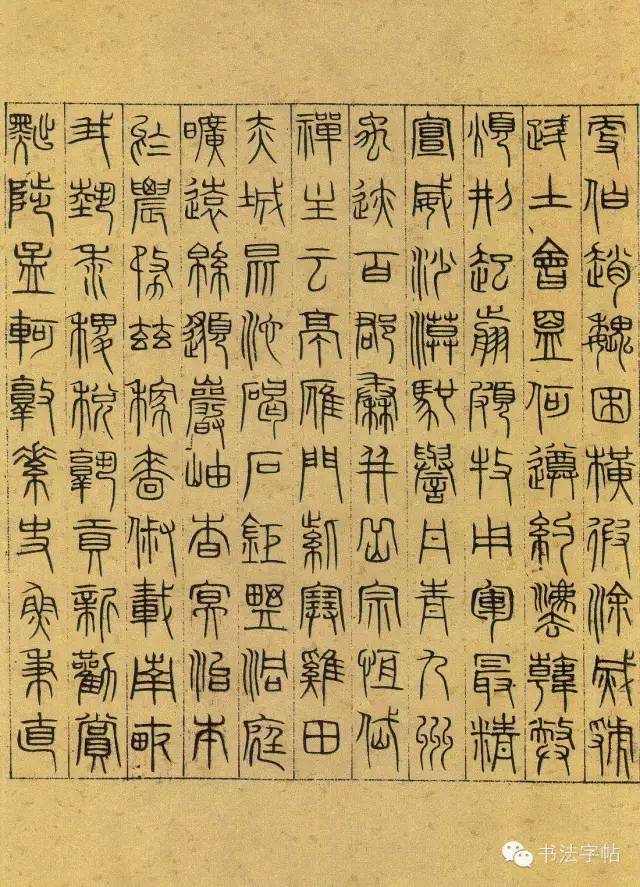 更伯趙魏困橫假涂滅虢
踐土會盟何遵約灋韓弊
煩刑起翦頗牧用軍最精
宣威沙漠馳譽丹青九州
禹迹百郡秦并岳宗恒岱
禪主云亭雁門紫塞雞田
赤城昆池碣石鉅野洞庭
曠遠綿邈巖岫杳冥治本
於農務茲稼穡俶載南畝
我藝黍稷稅熟貢新勸賞
黜陟孟軻敦素史魚秉直
书法字帖